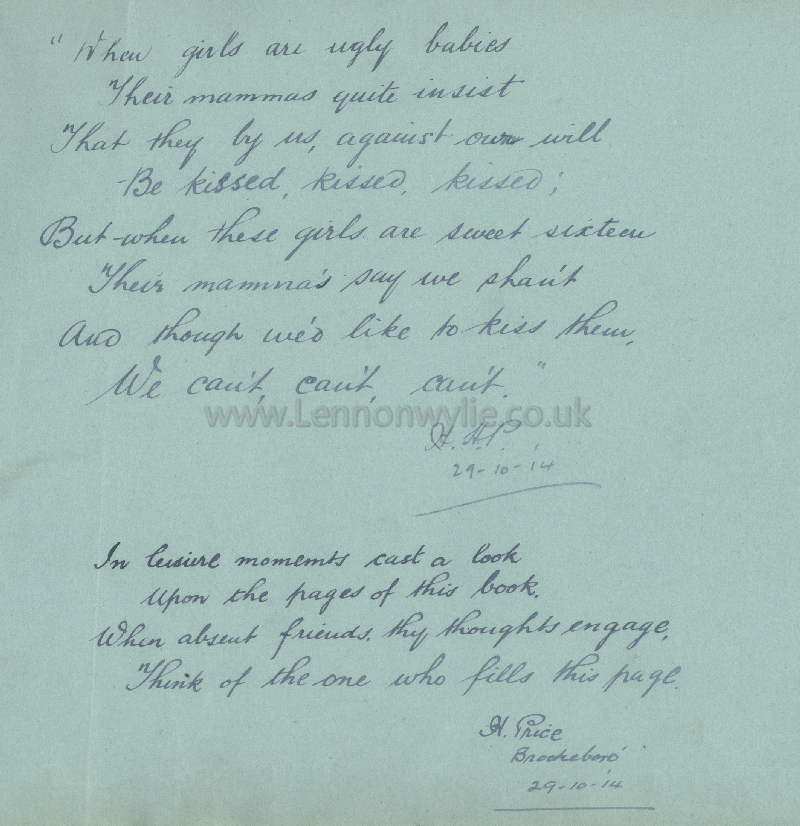 "When girls are ugly babies
Their mammas quite insist
That they by us, against our will
Be kissed, kissed, kissed;
But when these girls are sweet sixteen
Their mamma's say we shan't
And though we'd like to kiss them,
We can't, can't, can't."
www.Lennonwylie.co.uk
H.A.P.
29-10-14
In leisure moments cast a look
Upon the pages of this book.
When absent friends, thy thoughts engage,
Think of the one who fills this page.
H. Price
Brookeboro'
29-10-'14